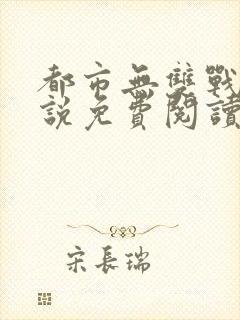 都市無雙戰
說免費閱讀
宋長瑞